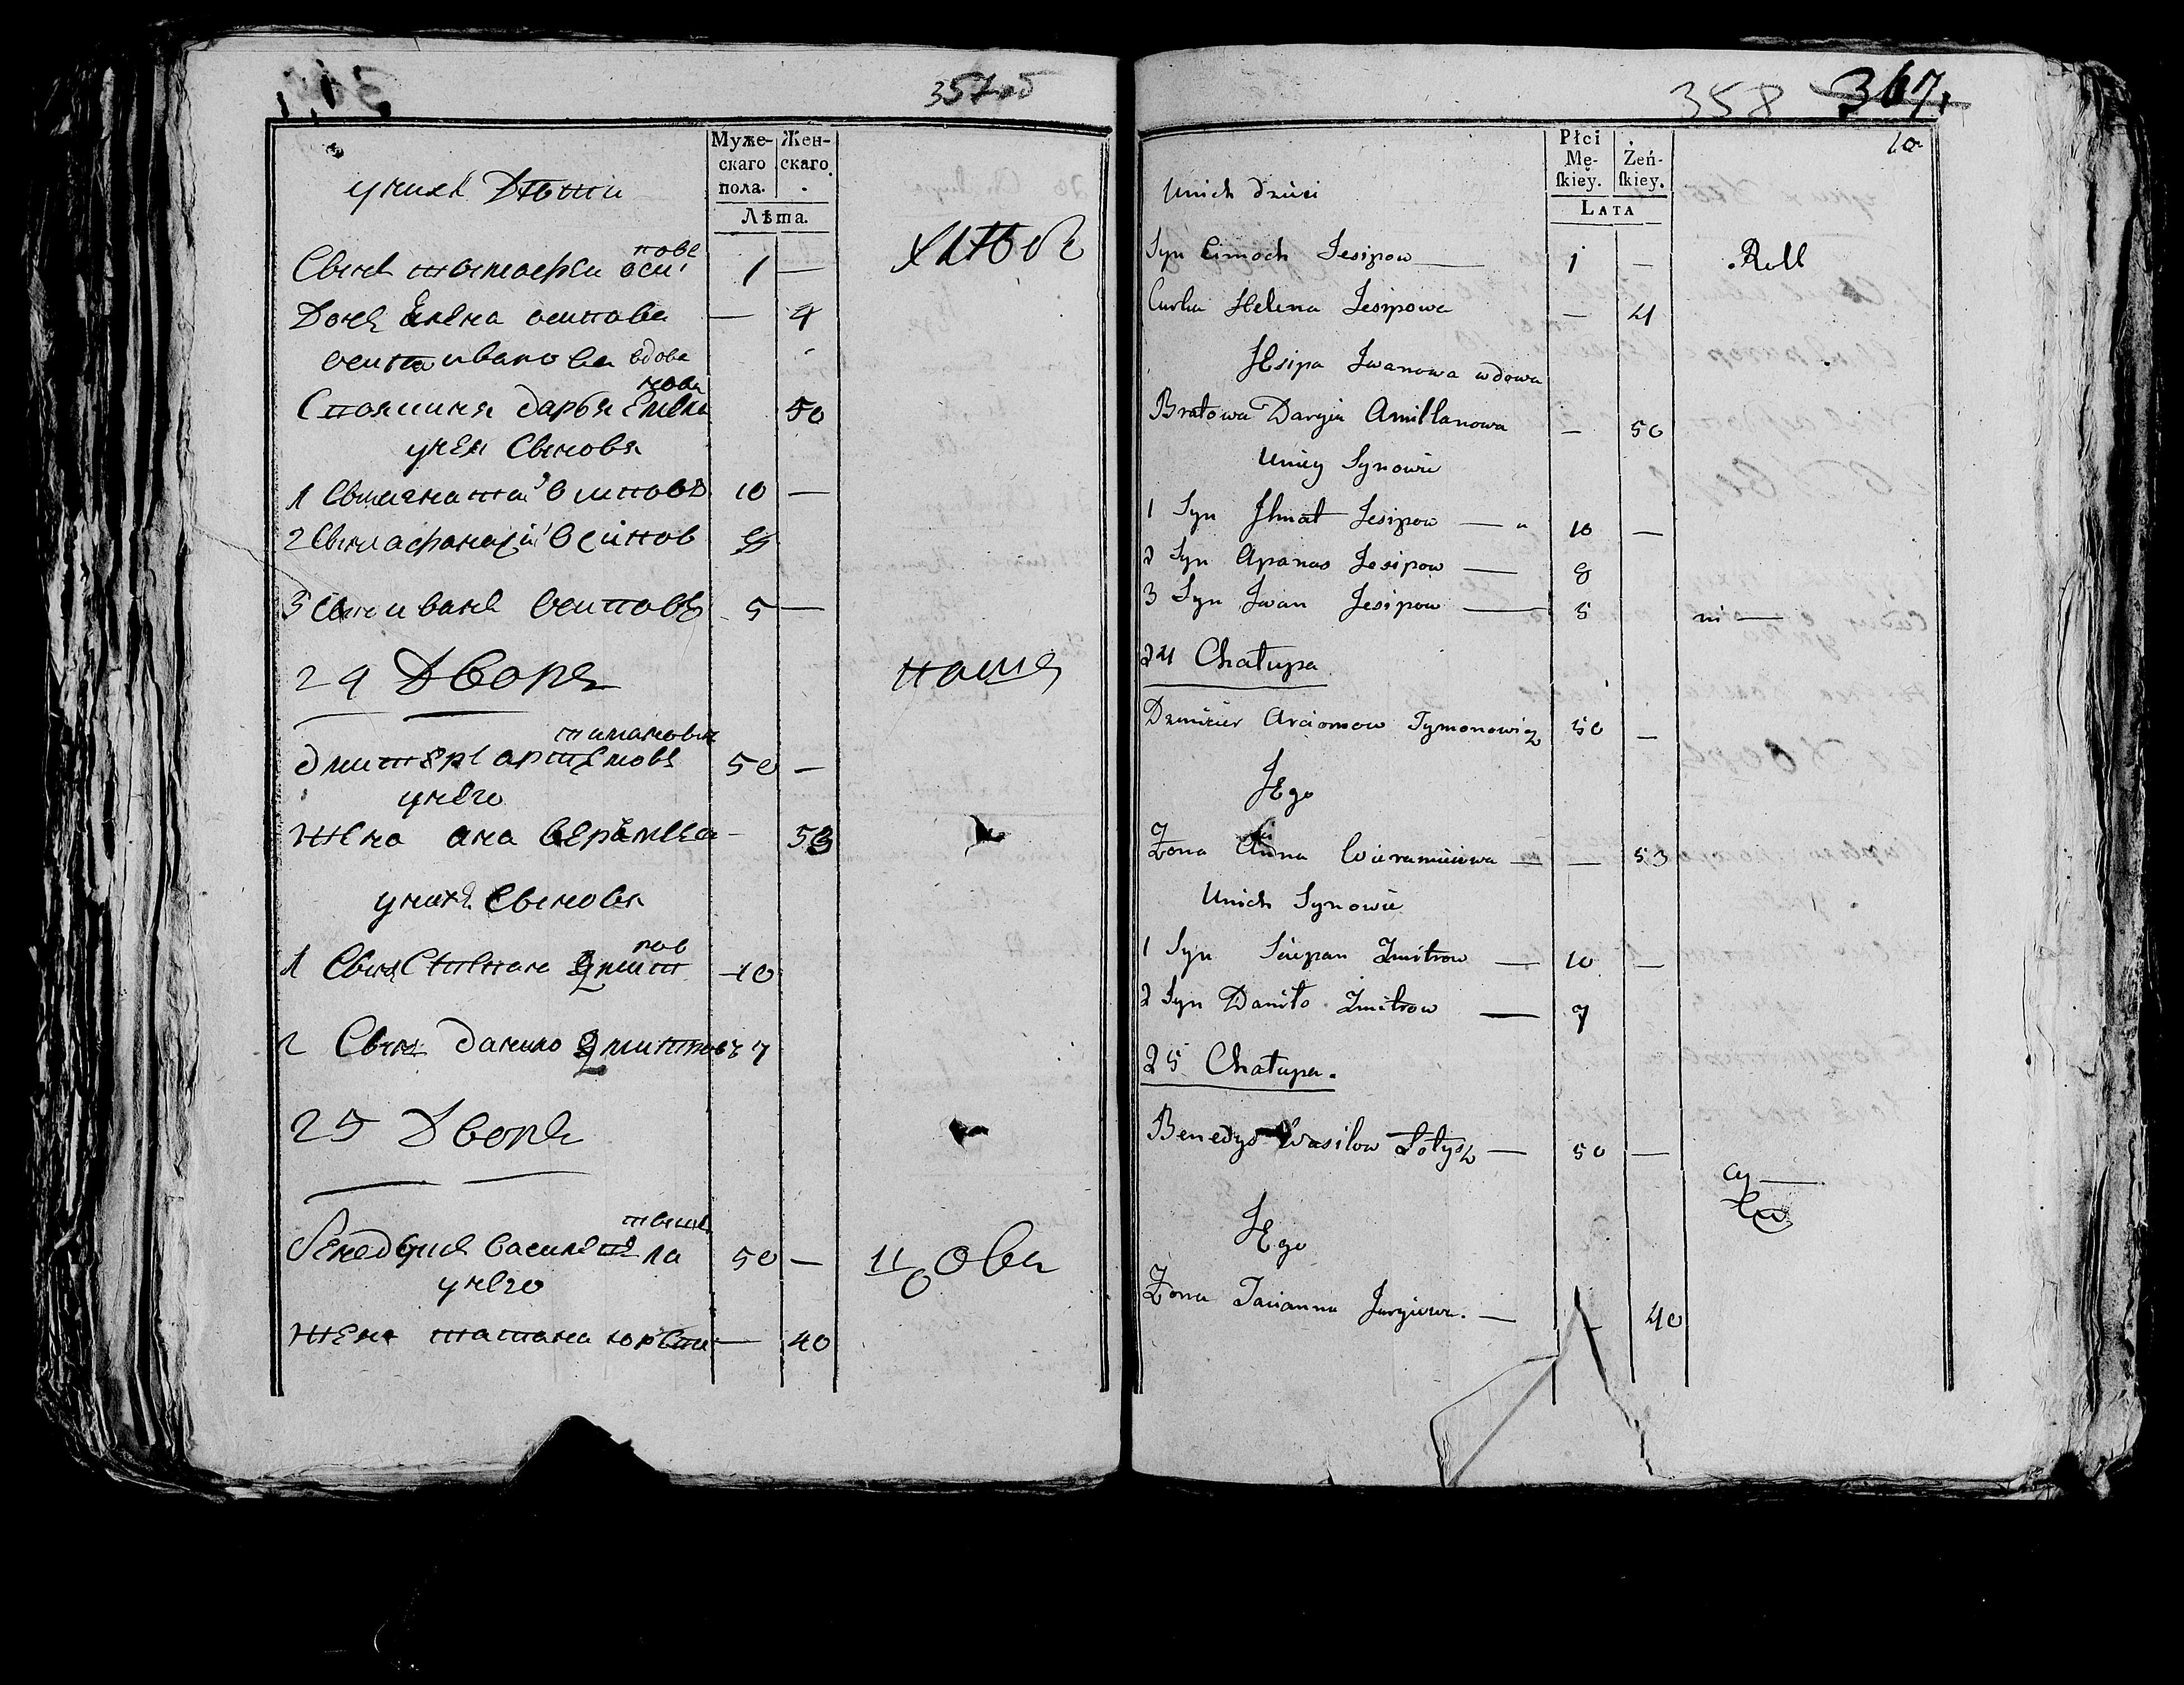 357 об
Муже-
скаго
пола.
Жен-
скаго.
Лѣта.
уних Дѣти
Сынъ тимофеи осиповъ 1 —
Дочъ Елена осипова — 4
осипа иванова вдова
дарья Емельянова 50
унея Сыновя
1 Сынъ игнатий Осиповъ 10 —
2 Сынъ афанасий Осипов 8
3 Сынъ иванъ Осиповъ 5 —
24 Дворъ
Дмитерь артемовъ тимановичъ 50 —
унего
жена ана — 53
унихъ Сыновя
1 Сынъ Степанъ Дмитров 10
2 Сынъ данило Дмитровъ 7
25 Дворъ
Бенедысь василевъ латышъ 50 —
унего
жена татяна юрева — 40
хлѣбъ
паша
358 367
Płci
Mę-
skiey.
Żeń-
skiey.
LATA
Unich dzieci
Syn Cimoch Jesipow — 1 —
Curka Helena Jesipowa — 4
JEsipa Iwanowa wdowa
Bratowa Daryia Amillanowa — 50
Uniey Synowie
1 Syn Jhnat Jesipow — 10 —
2 Syn Apanas Jesipow — 8
3 Syn Jwan Jesipow — 5
24 Chałupa
Dzmicier Arciomow Tymonowicz 50 —
JEgo
Żona Anna — — 53
Unich Synowie
1 Syn Sciepan Zmitrow — 10 —
2 Syn Daniło Zmitrow — 7
25 Chałupa.
Benedys Wasilow Łotysz — 50 —
JEgo
Żona Tacianna Juryiewa. — — 40